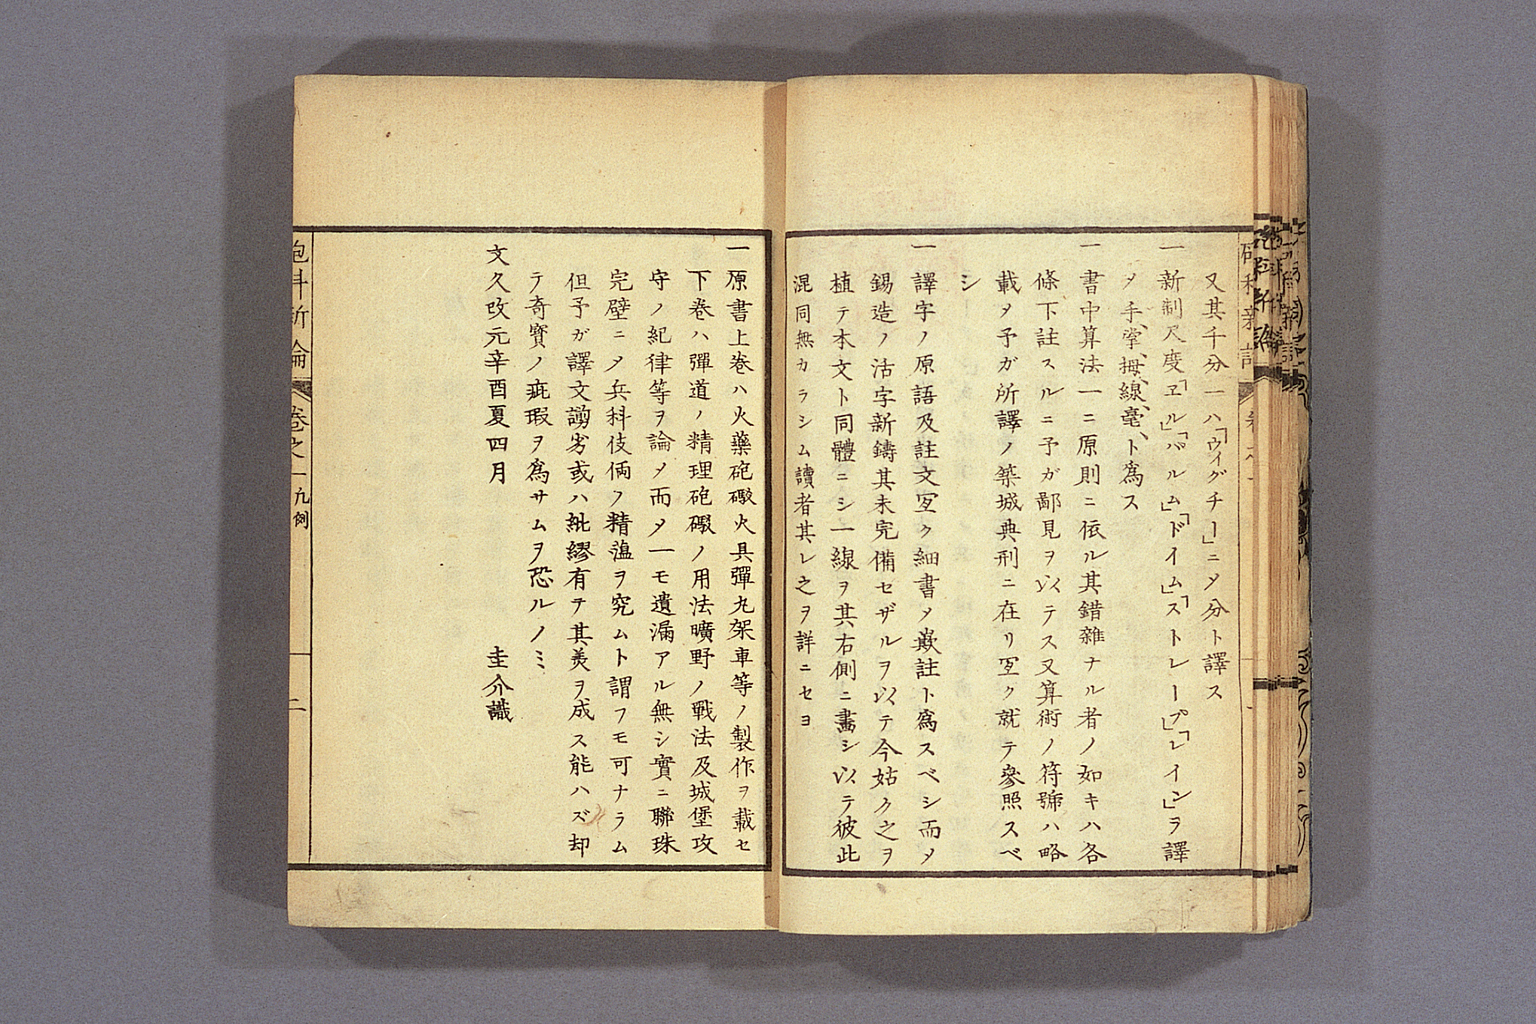 又其千分一ハ「ウイグチー」ニ〆分ト譯ス
一新制尺度「ヱル」「パルム」「ドイム」「ストレープ」「レイン」ヲ譯
〆手、掌、拇、線、毫、ト爲ス
一書中算法一ニ原則ニ依ル其錯雜ナル者ノ如キハ各
條下註スルニ予ガ鄙見ヲ以テス又算術ノ符號ハ略
載〆予ガ所譯ノ築城典刑ニ在リ宜ク就テ參照スベ
シ
一譯字ノ原語及註文宜ク細書〆嵌註ト爲スベシ而〆
錫造ノ活字新鑄其未完備セザルヲ以テ今姑ク之ヲ
植テ本文ト同體ニシ一線ヲ其右側ニ畫シ以テ彼此
混同無カラシム讀者其レ之ヲ詳ニセヨ
一原書上巻ハ火藥砲礮火具彈丸架車等ノ製作ヲ載セ
下巻ハ彈道ノ精理砲礮ノ用法曠野ノ戰法及城堡攻
守ノ紀律等ヲ論〆而〆一モ遺漏アル無シ實ニ聯珠
完壁ニ〆兵科伎倆ノ精藴ヲ究ムト謂フモ可ナラム
但予ガ譯文謭劣或ハ紕繆有テ其美ヲ成ス能ハズ却
テ奇寶ノ疵瑕ヲ爲サムヲ恐ルノミ
文久改元辛酉夏四月　圭介識
砲科新論　巻之一　凡例　二